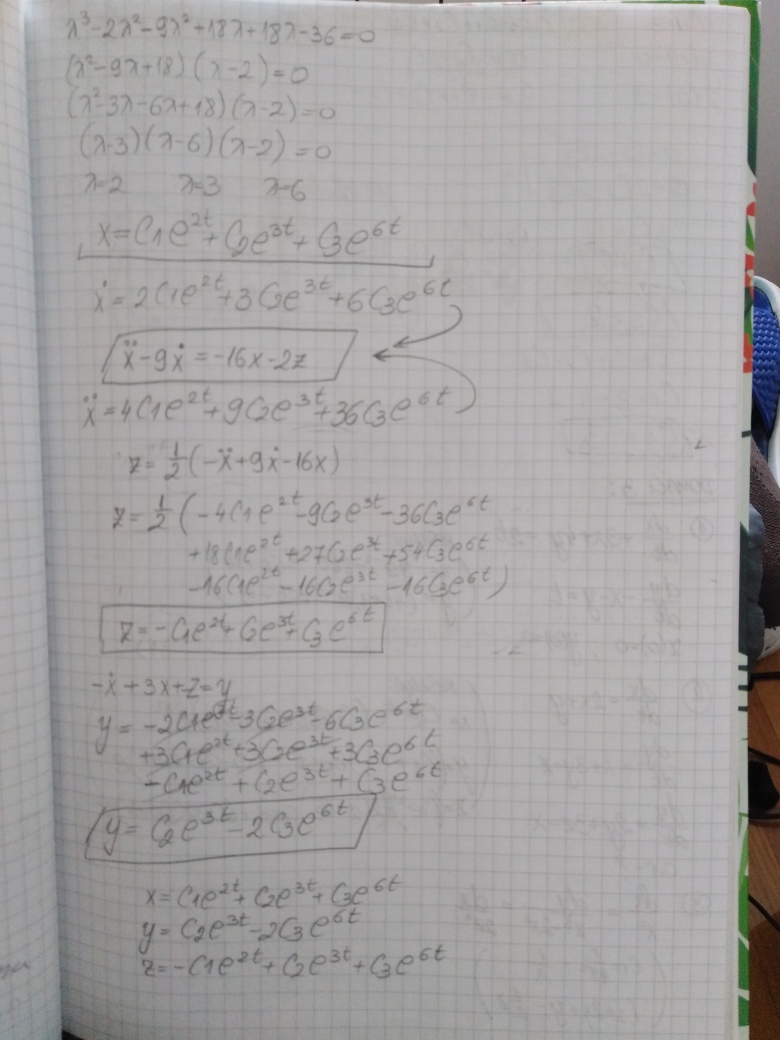 λ³-2λ²-9λ²+18λ+18λ-36=0
(λ²-9λ+18)(λ-2)=0
(λ²-3λ-6λ+18)(λ-2)=0
(λ-3)(λ-6)(λ-2)=0
λ=2 λ=3 λ=6
x=C₁e^2t+C₂e^3t+C₃e^6t
ẋ=2C₁e^2t+3C₂e^3t+6C₃e^6t
ẍ-9ẋ=-16x-2z
ẍ=4C₁e^2t+9C₂e^3t+36C₃e^6t
z=½(-ẍ+9ẋ-16x)
z=½(-4C₁e^2t-9C₂e^3t-36C₃e^6t
+18C₁e^2t+27C₂e^3t+54C₃e^6t
-16C₁e^2t-16C₂e^3t-16C₃e^6t)
z=-C₁e^2t+C₂e^3t+C₃e^6t
-ẋ+3x+z=y
y=-2C₁e^2t-3C₂e^3t-6C₃e^6t
+3C₁e^2t+3C₂e^3t+3C₃e^6t
-C₁e^2t+C₂e^3t+C₃e^6t
y=C₂e^3t-2C₃e^6t
x=C₁e^2t+C₂e^3t+C₃e^6t
y=C₂e^3t-2C₃e^6t
z=-C₁e^2t+C₂e^3t+C₃e^6t